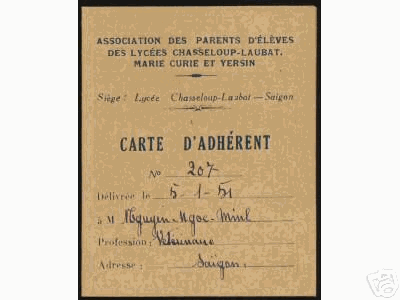 ASSOCIATION DES PARENTS D'ÉLÈVES
DES LYCÉES CHASSELOUP-LAUBAT,
MARIE CURIE ET YERSIN
Siège: Lycée Chasseloup-Laubat — Saigon
CARTE D'ADHÉRENT
No 207
Délivrée le 5-1-51
à M Nguyen-Ngoc-Minh
Profession: Vétérinaire
Adresse: Saigon.